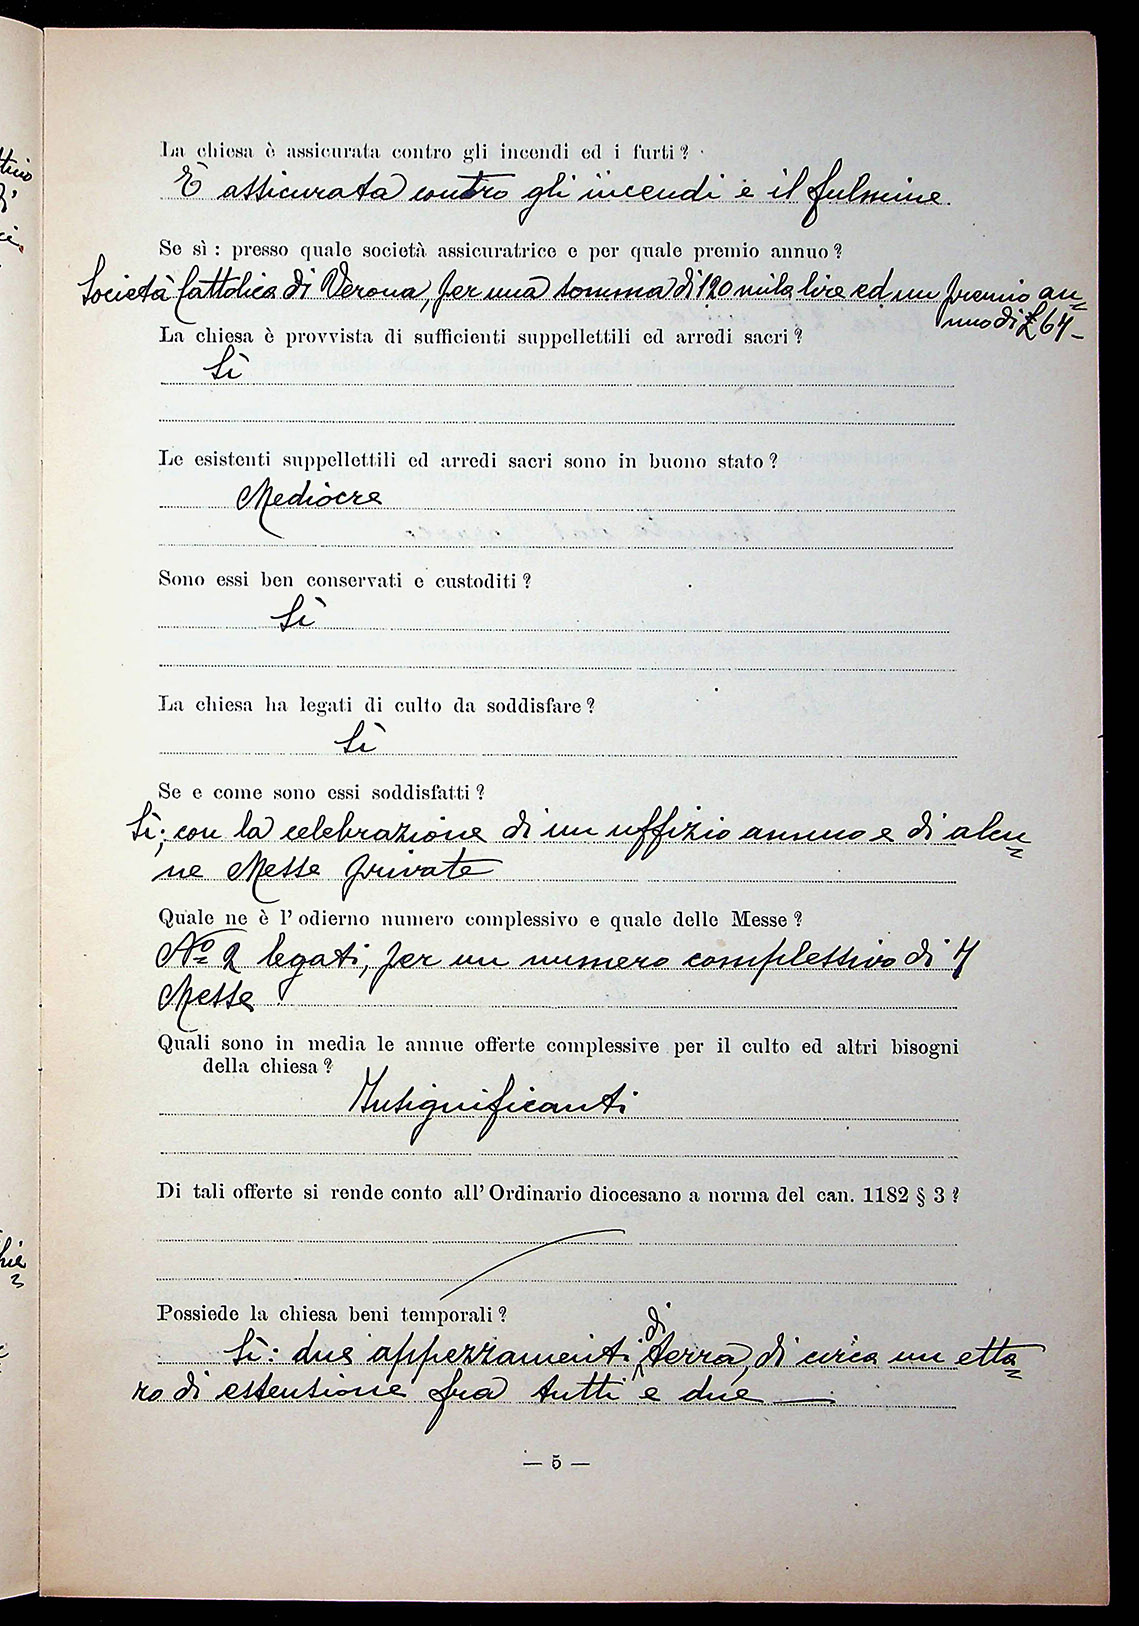 La chiesa è assicurata contro gli incendi ed i furti ?
È assicurata contro gli incendi e il fulmine.
Se sì : presso quale società assicuratrice e per quale premio annuo ?
Società Cattolica di Verona, per una somma di 120 mila lire ed un premio an=
nuo di £ 64-
La chiesa è provvista di sufficienti suppellettili ed arredi sacri ?
Sì
Le esistenti suppellettili ed arredi sacri sono in buono stato ?
Mediocre
Sono essi ben conservati e custoditi ?
Sì
La chiesa ha legati di culto da soddisfare ?
Sì
Se e come sono essi soddisfatti ?
Sì; con la celebrazione di un uffizio annuo e di alcu=
ne Messe private
Quale ne è l' odierno numero complessivo e quale delle Messe ?
Nº 2 legati, per un numero complessivo di 4
Messe
Quali sono in media le annue offerte complessive per il culto ed altri bisogni
della chiesa ?
Insignificanti
Di tali offerte si rende conto all' Ordinario diocesano a norma del can. 1182 § 3 ?
Possiede la chiesa beni temporali ?
Sì: due appezzamenti di terra, di circa un etta=
ro di estensione fra tutti e due —
— 5 —